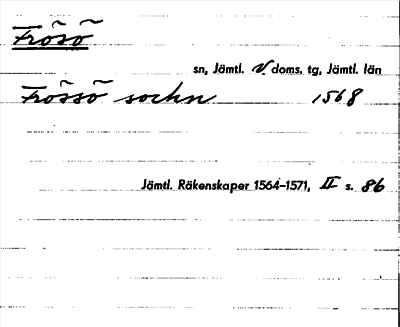 Frösö
sn, Jämtl. V. doms. tg, Jämtl. län
Frössö sochn 1568
Jämtl. Räkenskaper 1564-1571, II s. 86